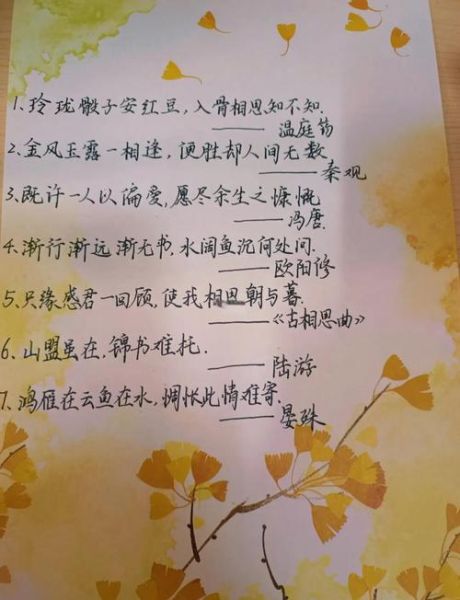 1、玲珑骰子安红豆，入骨相思知不知.
——温庭筠
2、金风玉露一相逢，便胜却人间无数
——秦观
3、既许一人以偏爱，愿尽余生之慷慨
——冯唐.
4、渐行渐远渐无书，水阔鱼沉何处问.
——欧阳修
5、只缘感君一回顾，使我相思朝与暮.
——《古相思曲》
6、山盟虽在，锦书难托.
——陆游
7、鸿雁在云鱼在水，惆怅此情难寄.
——晏殊